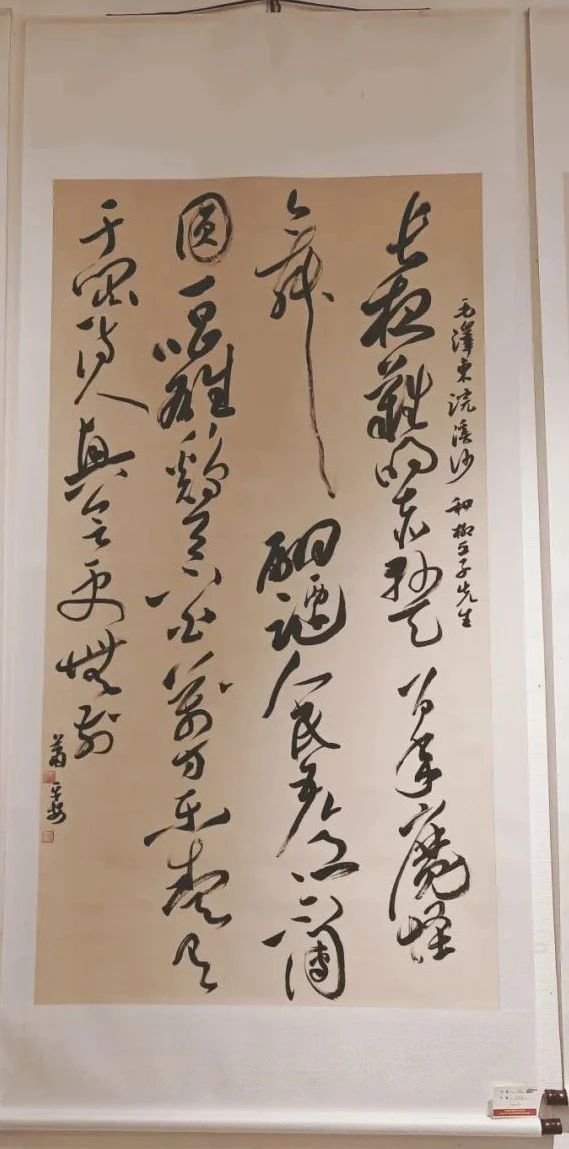 毛澤東浣溪沙 和柳亞子先生
長夜難明赤縣天 百年魔怪
舞翩躚人民五億不團
圓一唱雄鷄天下白萬方樂奏有
于闐詩人興會更無前
蕭